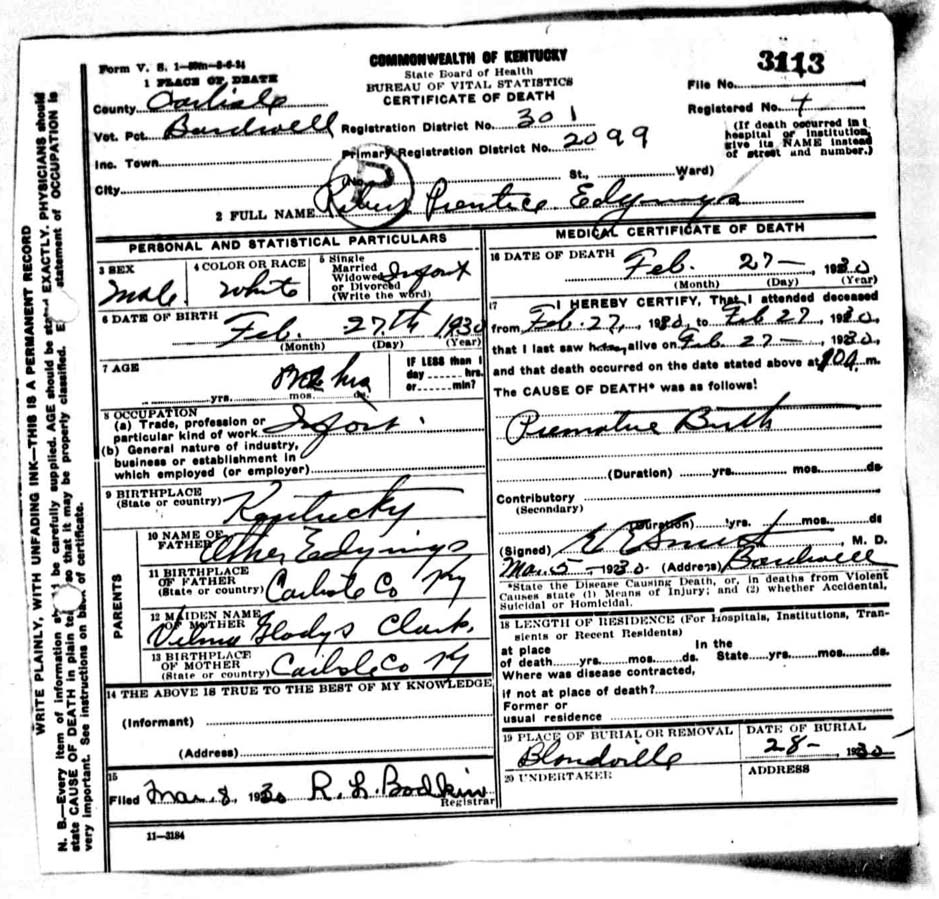 Form V. S. 1
COMMONWEALTH OF KENTUCKY
State Board of Health
BUREAU OF VITAL STATISTICS
CERTIFICATE OF DEATH
File No. 3113
Registered No.
(If death occurred in a hospital or institution, give its NAME instead of street and number.)
1 PLACE OF DEATH
County Carlisle
Vot. Pct. Bardwell
Registration District No. 301
Inc. Town
Primary Registration District No. 2099
City
No. St., Ward)
2 FULL NAME Prentice
PERSONAL AND STATISTICAL PARTICULARS
3 SEX
Male
4 COLOR OR RACE
White
5 Single
Married
Widowed
or Divorced
(Write the word)
Infant
6 DATE OF BIRTH
Feb. 27th, 1930
(Month) (Day) (Year)
7 AGE
yrs. mos. ds.
IF LESS than 1
day hrs.
or min?
8 OCCUPATION
(a) Trade, profession or
particular kind of work Infant
(b) General nature of industry,
business or establishment in
which employed (or employer)
9 BIRTHPLACE
(State or country) Kentucky
PARENTS
10 NAME OF
FATHER Other
11 BIRTHPLACE
OF FATHER
(State or country) Carlisle Co Ky
12 MAIDEN NAME
OF MOTHER
Vilma Gladys Clark
13 BIRTHPLACE
OF MOTHER
(State or country) Carlisle Co Ky
14 THE ABOVE IS TRUE TO THE BEST OF MY KNOWLEDGE
(Informant)
(Address)
15
Filed Mar 8, 1930 R. L. Bodkin
Registrar
11—3184
MEDICAL CERTIFICATE OF DEATH
16 DATE OF DEATH Feb. 27 — , 1930
(Month) (Day) (Year)
17 I HEREBY CERTIFY, That I attended deceased
from Feb. 27, 1930, to Feb 27, 1930,
that I last saw alive on Feb 27 — , 1930,
and that death occurred on the date stated above at m.
The CAUSE OF DEATH* was as follows!
Premature Birth
(Duration) yrs. mos. ds
Contributory
(Secondary)
(Duration) yrs. mos. ds
(Signed) Smith, M. D.
Mar. 5 — 1930. (Address) Bardwell
*State the Disease Causing Death, or, in deaths from Violent
Causes state (1) Means of Injury; and (2) whether Accidental,
Suicidal or Homicidal.
18 LENGTH OF RESIDENCE (For Hospitals, Institutions, Tran-
sients or Recent Residents)
at place In the
of death yrs. mos. ds. State yrs. mos. ds.
Where was disease contracted,
if not at place of death?
Former or
usual residence
19 PLACE OF BURIAL OR REMOVAL
Blandville
DATE OF BURIAL
28 — 1930
20 UNDERTAKER
ADDRESS
WRITE PLAINLY, WITH UNFADING INK—THIS IS A PERMANENT RECORD
N. B.—Every item of information should be carefully supplied. AGE should be stated EXACTLY. PHYSICIANS should
state CAUSE OF DEATH in plain so that it may be properly classified. statement of OCCUPATION is
very important. See instructions on back of certificate.